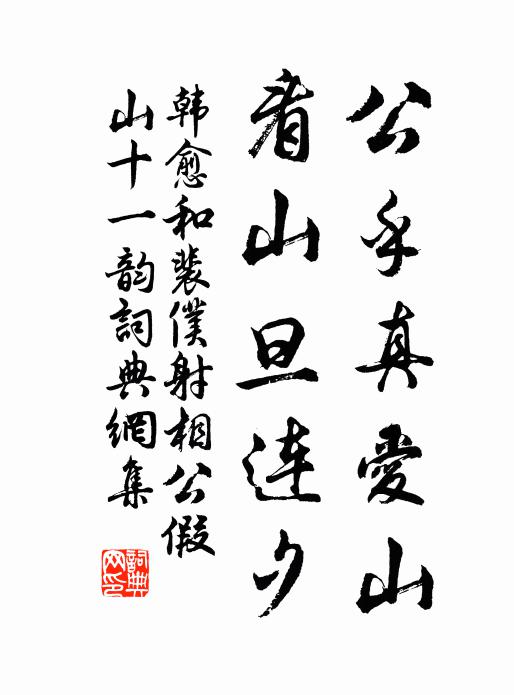 公乎真愛山
看山旦連夕
韩愈和裴僕射相公假
山十一韵詞典網集
詞典网印